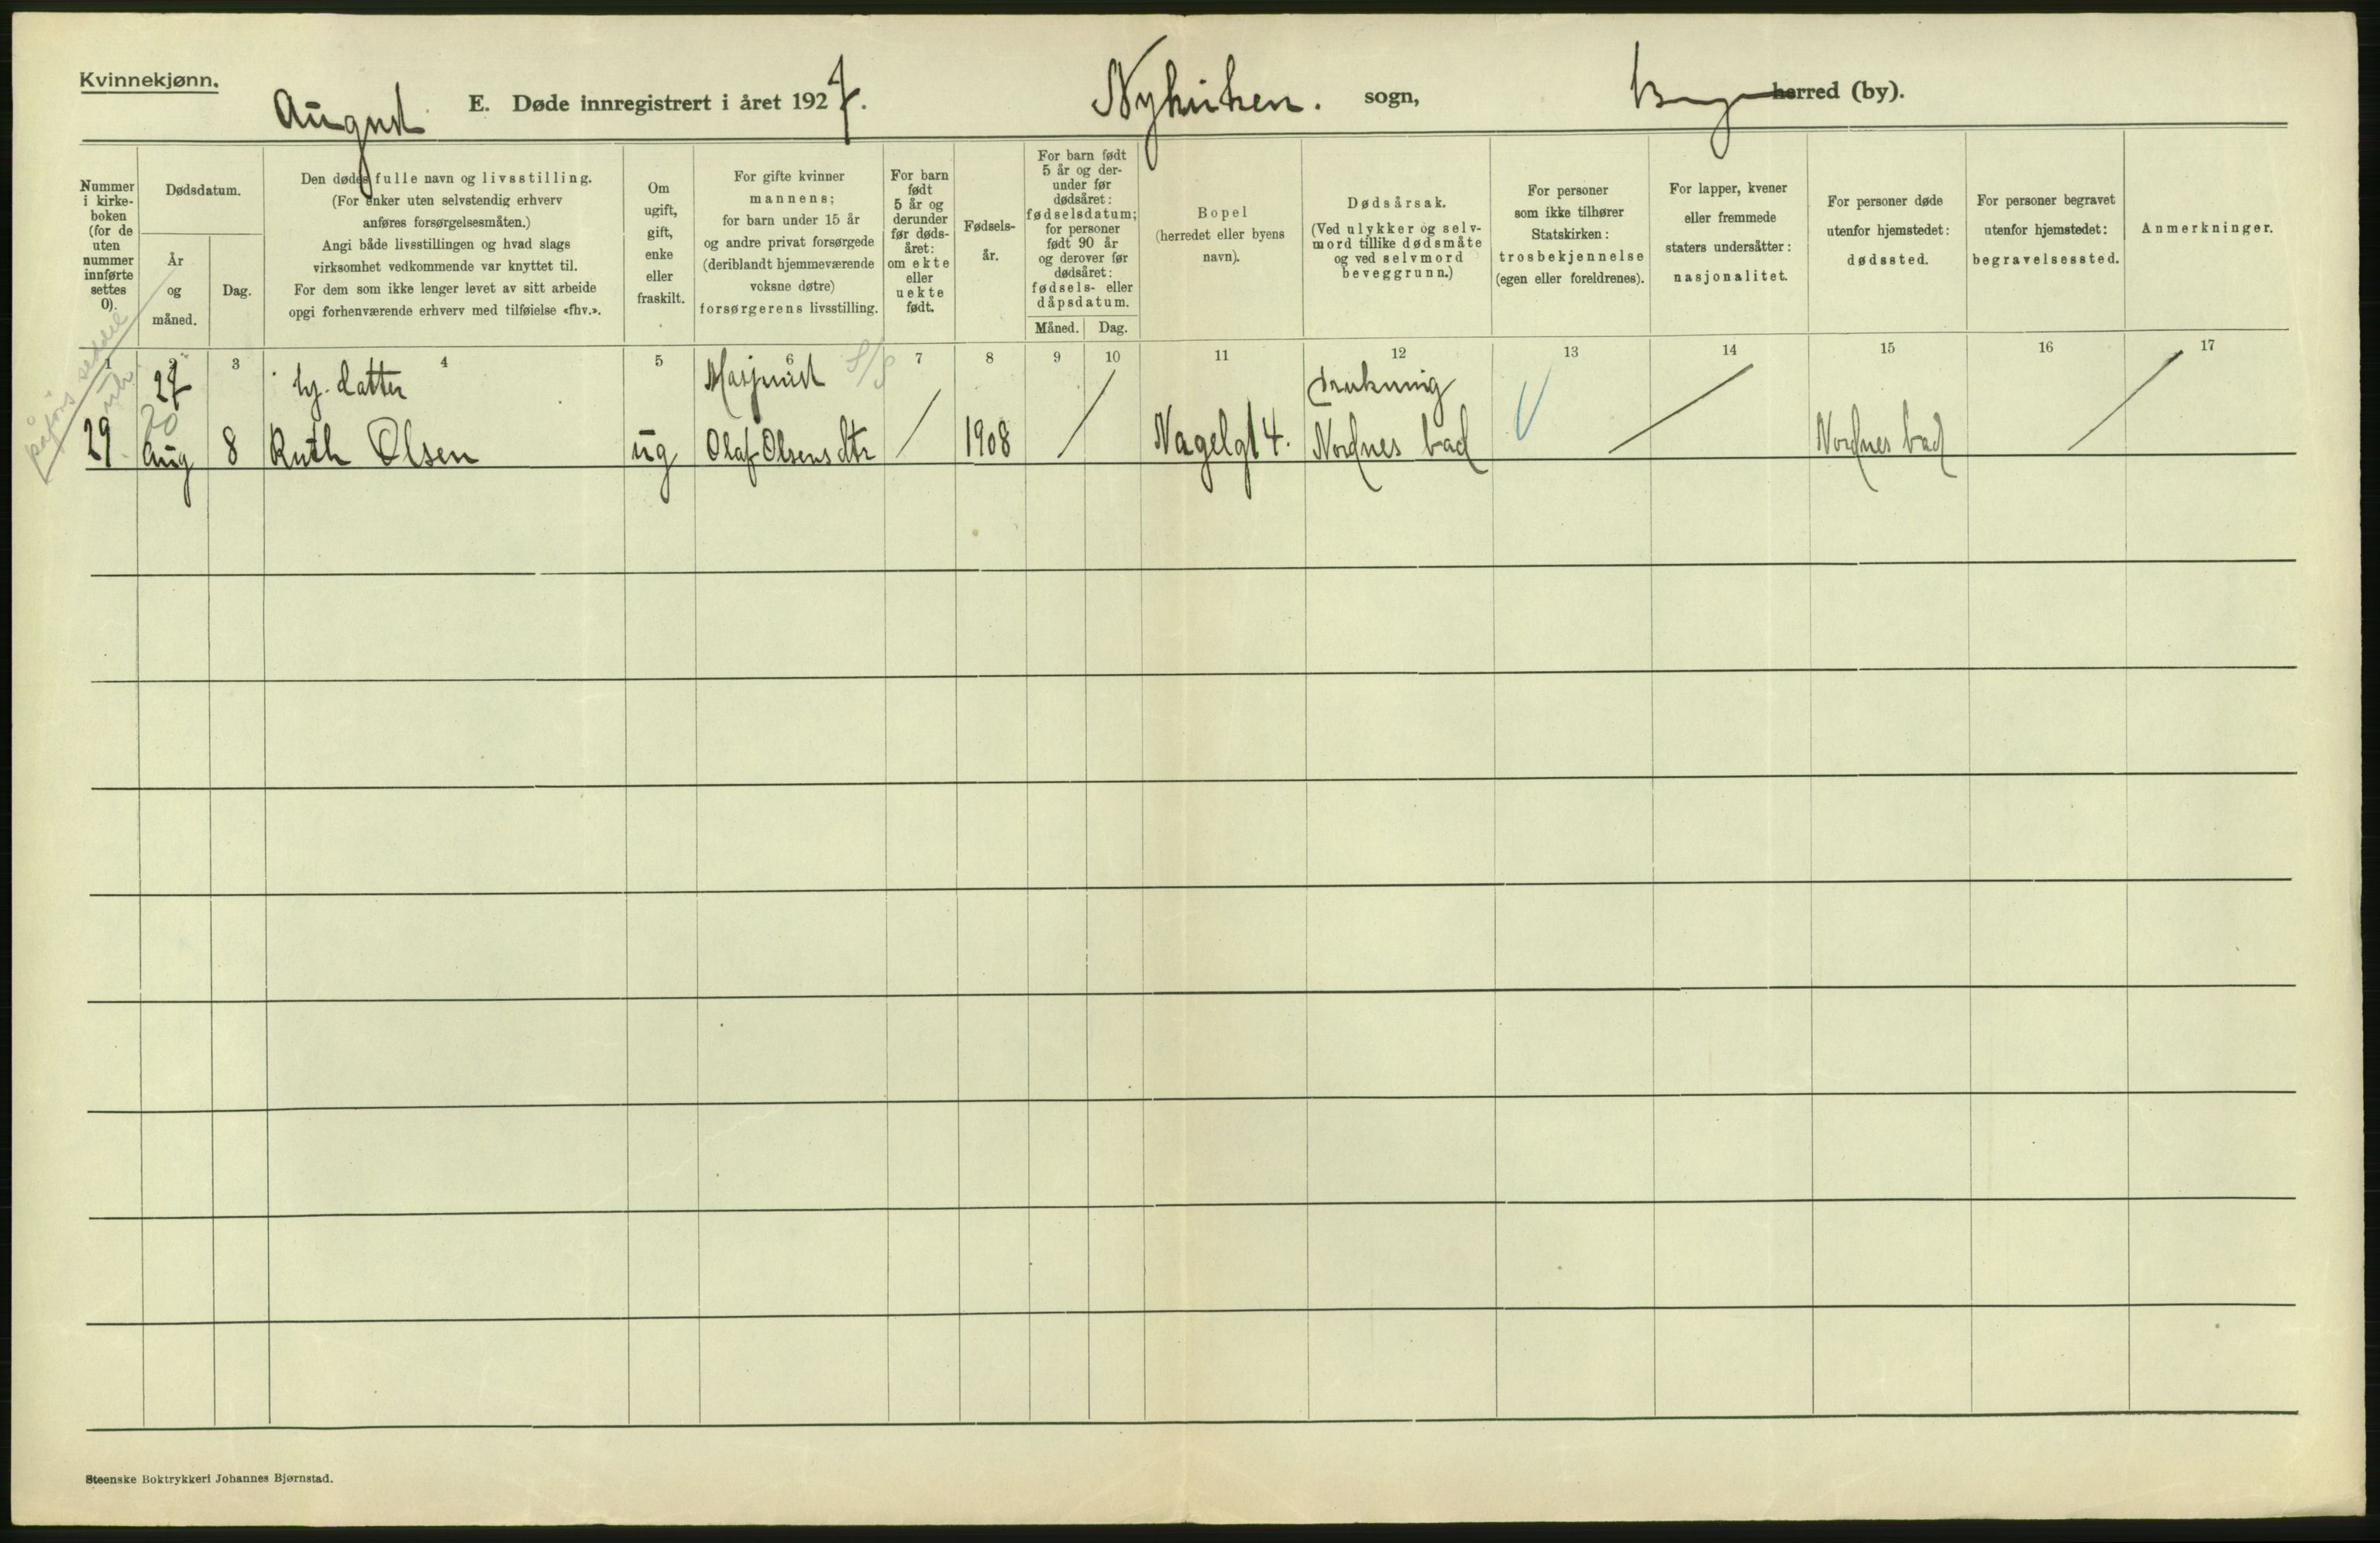 Kvinnekjønn.
August
E. Døde innregistrert i året 1927.
Nykirken. sogn,
herred (by).
Nummer i kirke-boken (for de uten nummer innførte settes 0).
Dødsdatum.
År og måned.
Dag.
Den dødes fulle navn og livsstilling.
(For enker uten selvstendig erhverv
anføres forsørgelsesmåten.)
Angi både livsstillingen og hvad slags
virksomhet vedkommende var knyttet til.
For dem som ikke lenger levet av sitt arbeide
opgi forhenværende erhverv med tilføielse «fhv.».
Om
ugift,
gift,
enke
eller
fraskilt.
For gifte kvinner
mannens;
for barn under 15 år
og andre privat forsørgede
(deriblandt hjemmeværende
voksne døtre)
forsørgerens livsstilling.
For barn
født
5 år og
derunder
før døds-
året:
om ekte
eller
uekte
født.
Fødsels-
år.
For barn født
5 år og der-
under før
dødsåret:
fødselsdatum;
for personer
født 90 år
og derover før
dødsåret:
fødsels- eller
dåpsdatum.
Måned. Dag.
Bopel
(herredet eller byens
navn).
Dødsårsak.
(Ved ulykker og selv-
mord tillike dødsmåte
og ved selvmord
beveggrunn.)
For personer
som ikke tilhører
Statskirken:
trosbekjennelse
(egen eller foreldrenes).
For lapper, kvener
eller fremmede
staters undersåtter:
nasjonalitet.
For personer døde
utenfor hjemstedet:
dødssted.
For personer begravet
utenfor hjemstedet:
begravelsessted.
Anmerkninger.
1 2 3 4 5 6 7 8 9 10 11 12 13 14 15 16 17
27 hj. datter Maskinist drukning
29 Aug 8 Ruth Olsen ug Olaf Olsens dtr / 1908 / Nagelgt 4. Nordnes bad / Nordnes bad /
Steenske Boktrykkeri Johannes Bjørnstad.